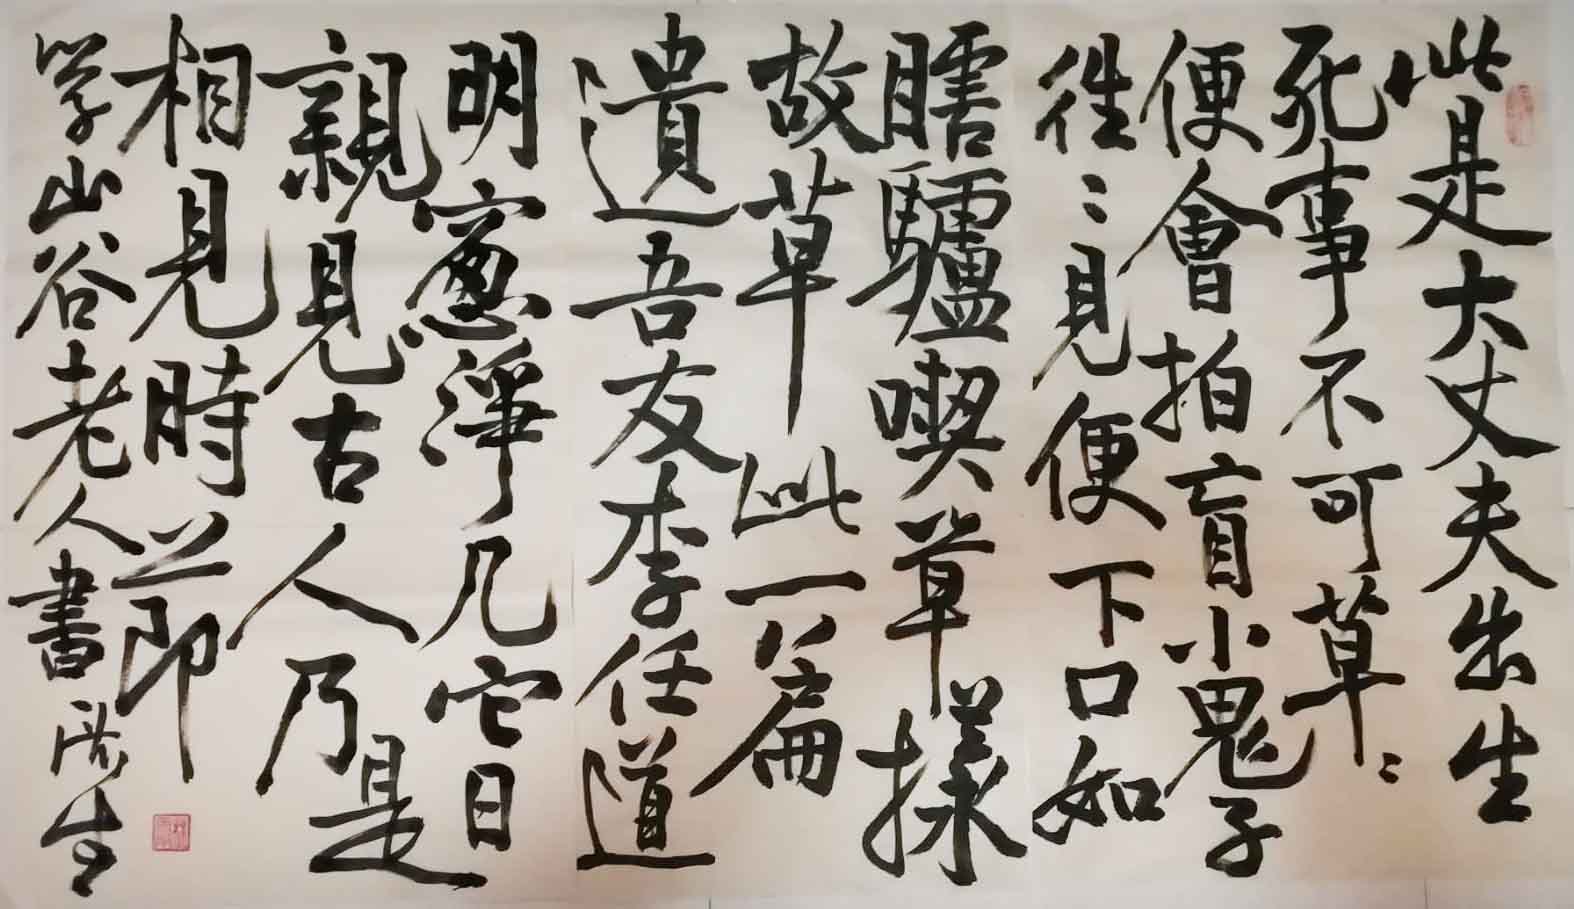 此是大丈夫出生
死事不可草〻
便會拍盲小鬼子
往〻見便下口如
瞎驢喫草樣
故草此一篇
遺吾友李任道
明窻淨几它日
親見古人乃是
相見時節
学山谷老人書